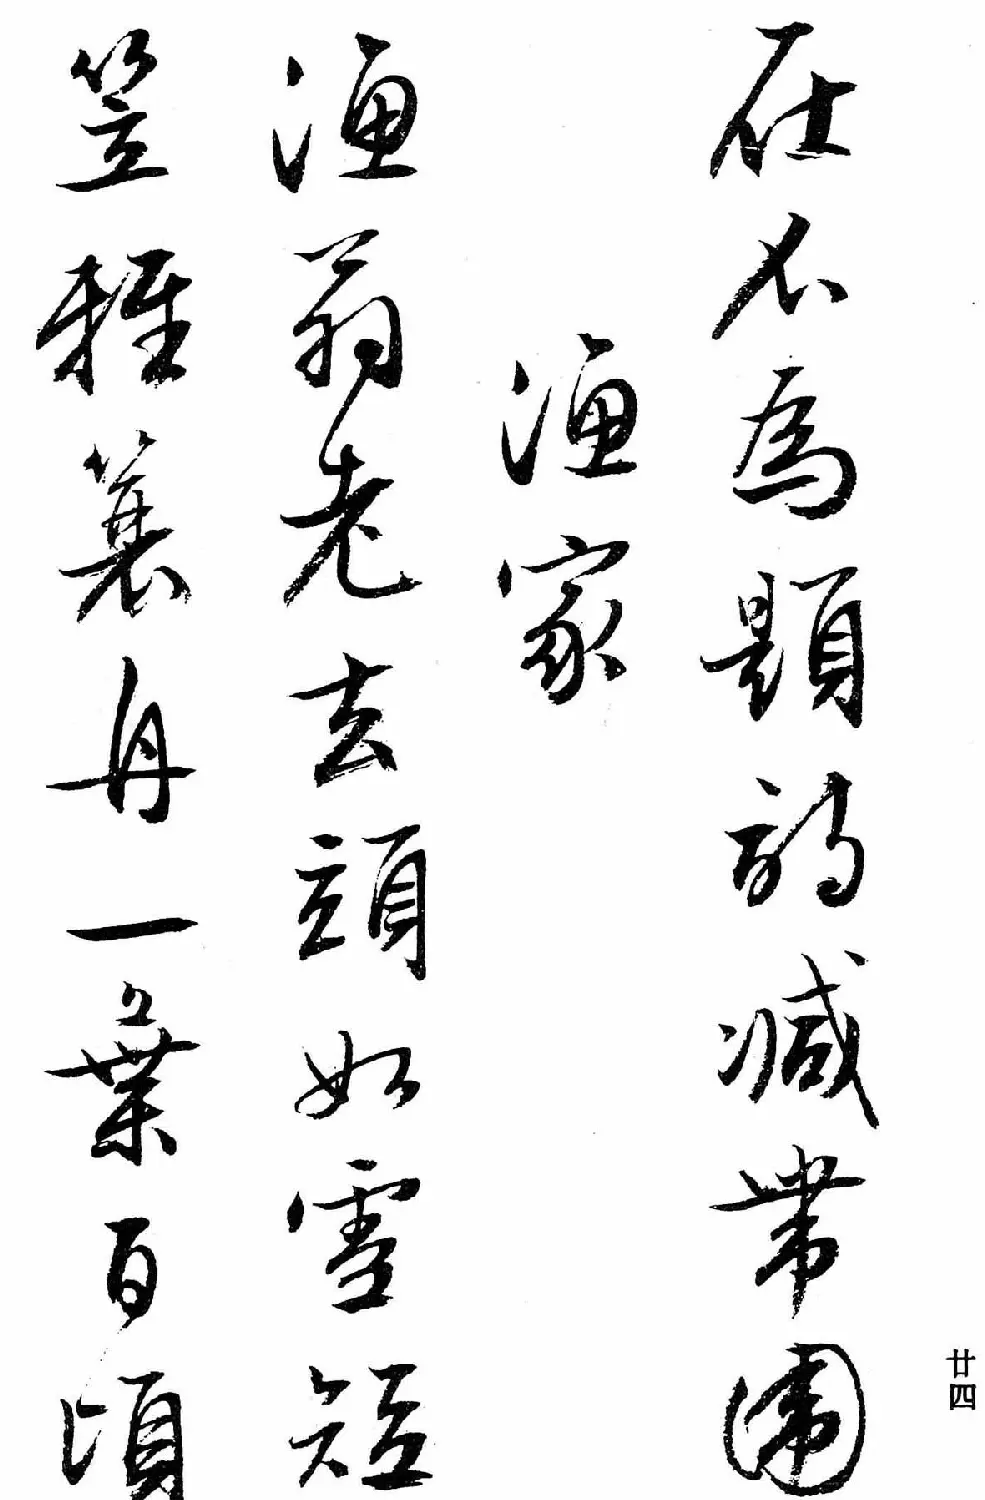 在不為題詩減帶圍
漁家
漁翁老去頭如雪短
笠輕蓑舟一葉百頃
廿四